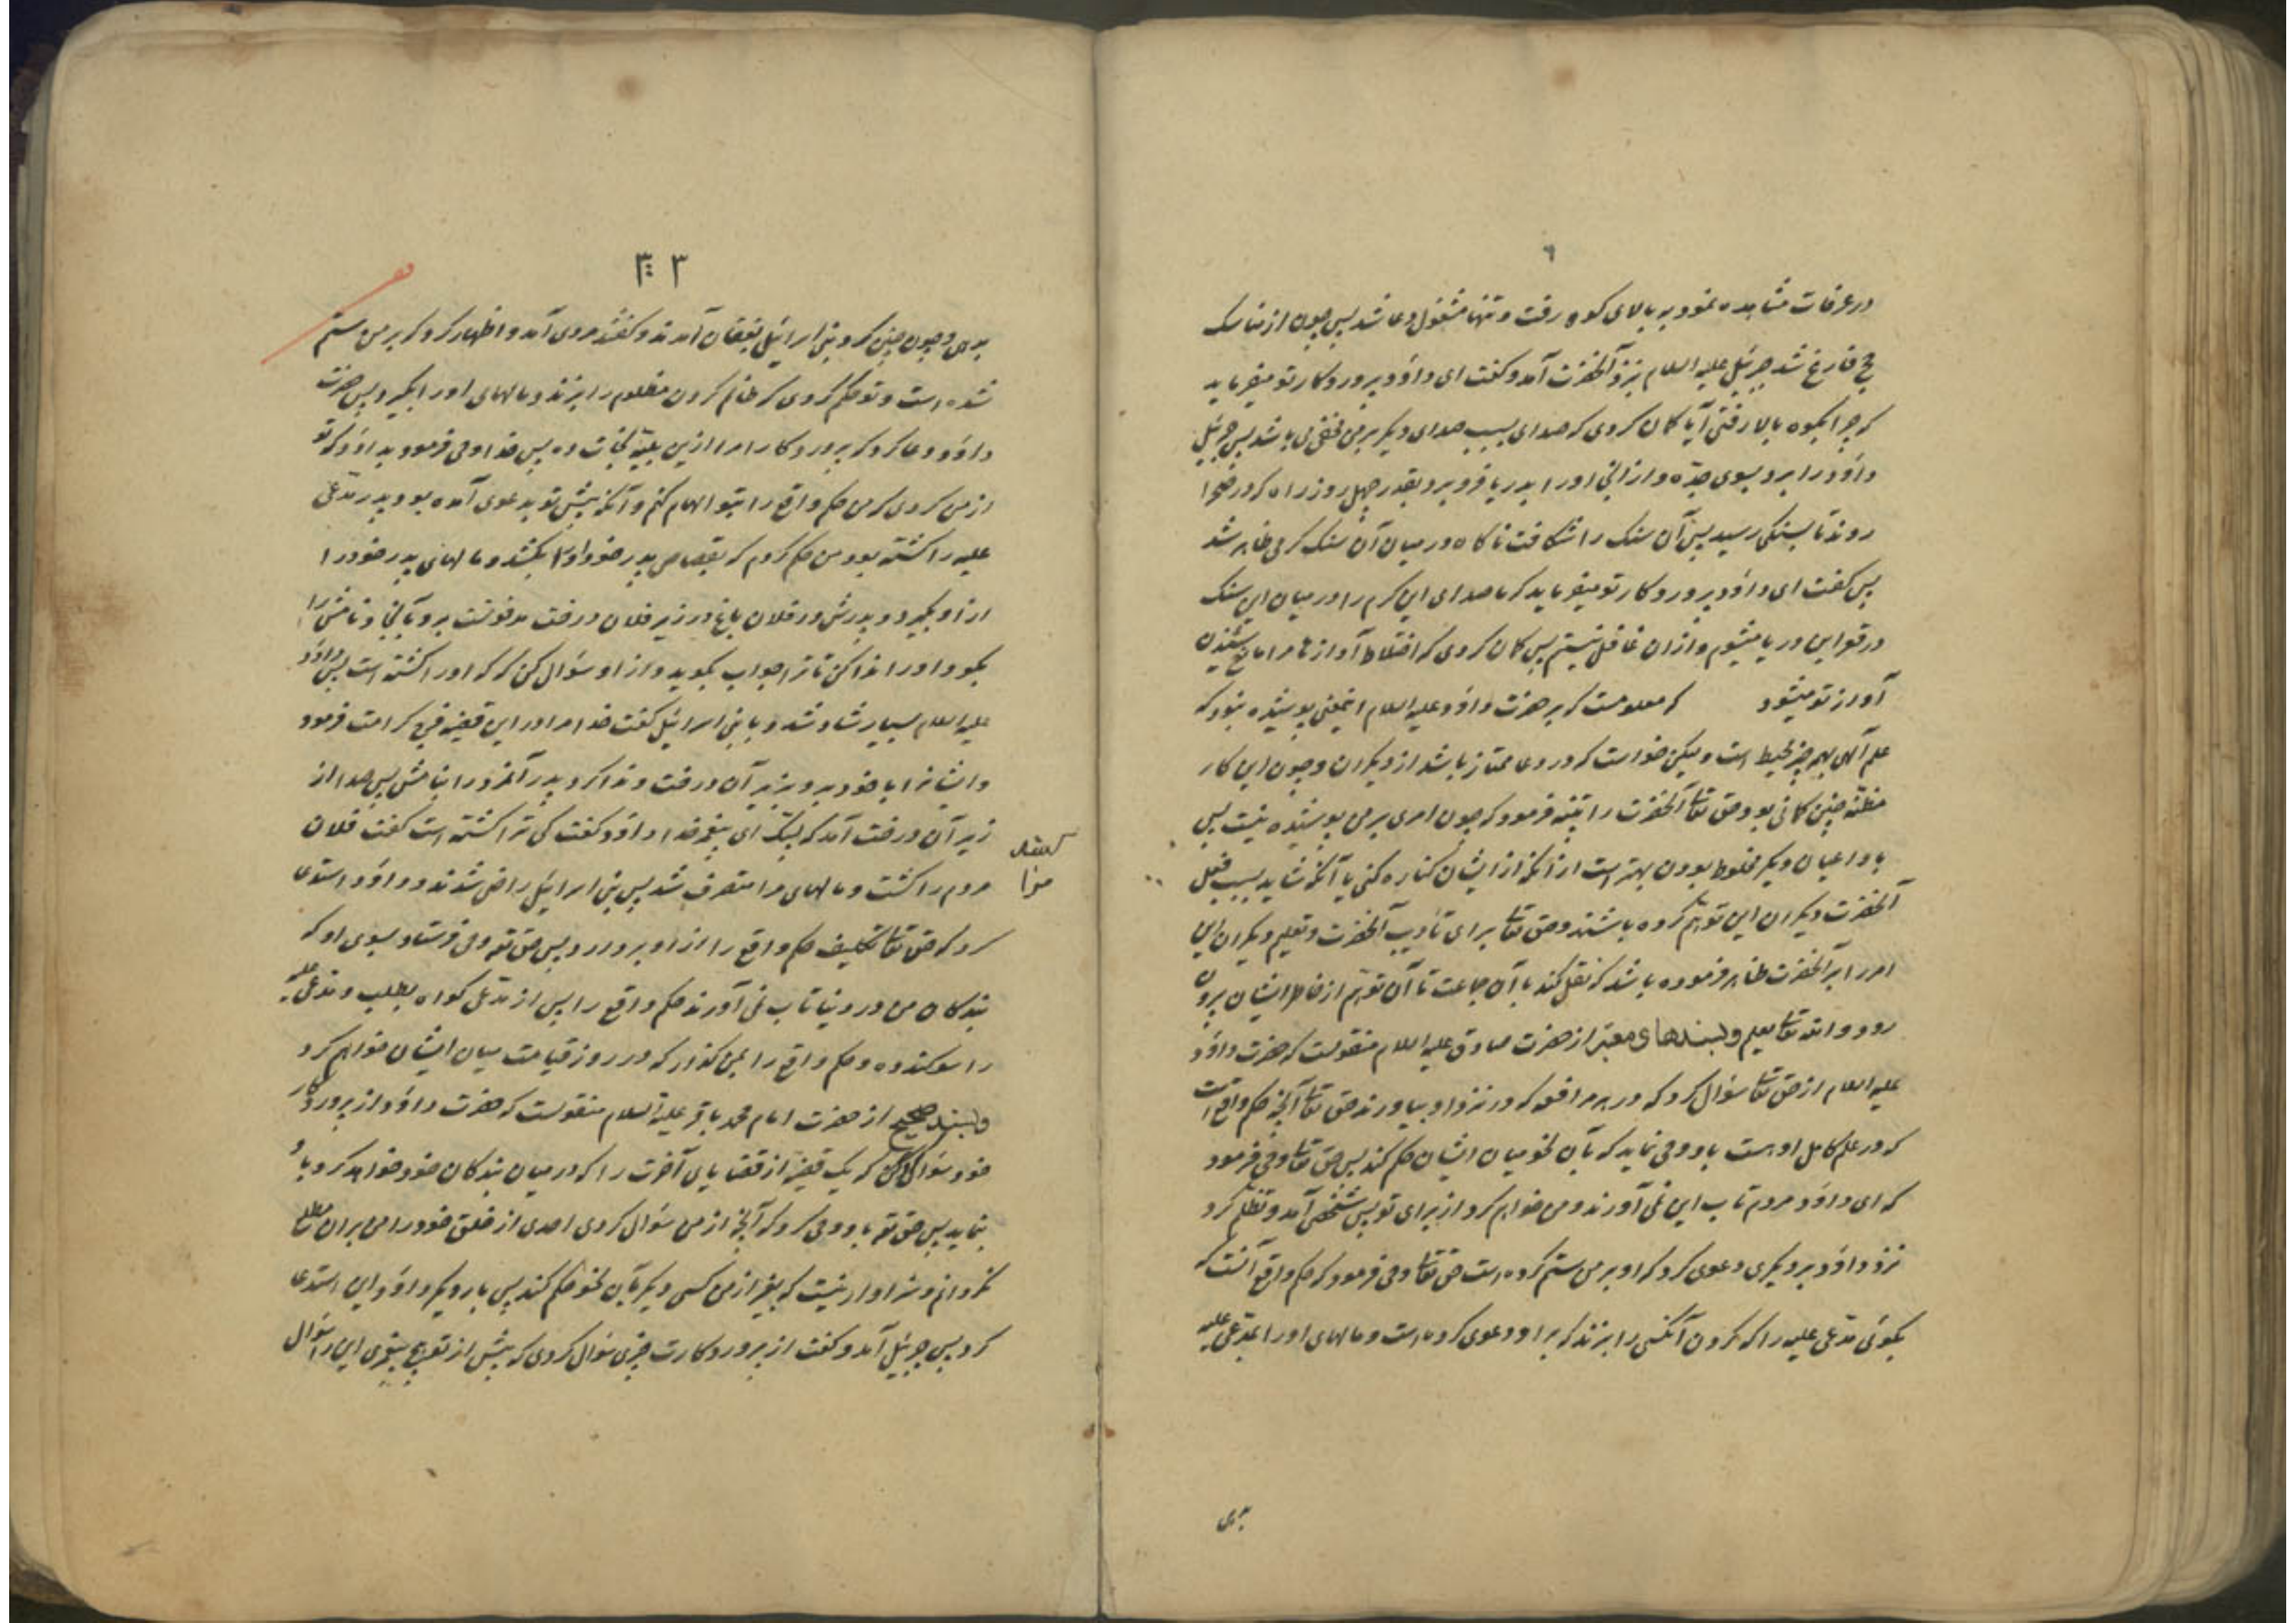 ۶
در عرفات مشاهده نمود به بالای کوه رفت و تنها مشغول دعا شد پس چون از مناسک
حج فارغ شد جبرئیل علیه السلام بنزد آنحضرت آمد و کفت ای داود پروردکار تو میفرماید
که چرا بکوه بالا رفتی آیا کمان کردی که صدای بسبب صدای دیکر بر من مخفی می باشد پس جبرئیل
داود را برد بسوی جده و از آنجا او را بدریا فرو برد بقدر چهل روز راه که در صحرا
روند تا بسنکی رسید پس آن سنک را شکافت ناکاه در میان آن سنک کرمی ظاهر شد
پس کفت ای داود پروردکار تو میفرماید که ما صدای این کرم را در میان این سنک
در قعر این دریا میشنوم و از ان غافل نیستم پس کمان کردی که اختلاط آوازها مرا مانع شنیدن
آواز تو میشود که معلومست که بر حضرت داود علیه السلام اینمعنی پوشیده نبود که
علم آلهی بهمه چیز محیط است و لیکن خواست که در دعا ممتاز باشد از دیکران و چون این کار
مظنه چنین کمانی بود حق تعالی آنحضرت را تنبیه فرمود که چون امری بر من پوشیده نیست پس
با داعیان دیکر مخلوط بودن بهتر است از آنکه از ایشان کناره کنی یا آنکه شاید بسبب فعل
آنحضرت دیکران این توهم کرده باشند و حق تعالی برای تادیب آنحضرت و تعلیم دیکران این
امر را بر آنحضرت ظاهر فرموده باشد که نقل کند با آن جماعت تا آن توهم از خاطر ایشان بیرون
رود و الله تعالی یعلم و بسندهای معتبر از حضرت صادق علیه السلام منقولست که حضرت داود
علیه السلام از حق تعالی سؤال کرد که در هر مرافعه که در نزد او بیاورند حق تعالی آنچه حکم واقع است
که در علم کامل او هست باو وحی نماید که بآن نحو میان ایشان حکم کند پس حق تعالی وحی فرمود
که ای داود مردم تاب این نمی آورند و من خواهم کرد از برای تو پس شخصی آمد و تظلم کرد
نزد داود بر دیکری دعوی کرد که او بر من ستم کرده است حق تعالی وحی فرمود که حکم واقع آنست که
بکوئی مدعی علیه را که کردن آنکس را بزند که بر او دعوی کرده است و مالهای او را بمدعی علیه
بدهی
۳۰۳
بدهی و چون چنین کرد بنی اسرائیل بفغان آمدند و کفتند مردی آمد و اظهار کرد که بر من ستم
شده است و تو حکم کردی که ظالم کردن مظلوم را بزند و مالهای او را بکیرد پس حضرت
داود دعا کرد که پروردکارا مرا ازین بلیه نجات ده پس خدا وحی فرمود بداود که تو
از من کردی که من حکم واقع را بتو الهام کنم و آنکه پیش تو بدعوی آمده بود پدر مدعی
علیه را کشته بود من حکم کردم که بقصاص پدر خود او را بکشد و مالهای پدر خود را
از او بکیرد و پدرش در فلان باغ در زیر فلان درخت مدفونست برو بآنجا و نامش را
بکو و او را ندا کن تا ترا جواب بکوید و از او سؤال کن که که او را کشته است پس داود
علیه السلام بسیار شاد شد و با بنی اسرائیل کفت خدا مرا در این قضیه فرجی کرامت فرمود
و ایشانرا با خود برد بزیر آن درخت و ندا کرد پدر آنمرد را بنامش پس صدا از
زیر آن درخت آمد که لبیک ای پیغمبر خدا داود کفت کی ترا کشته است کفت فلان
مردم را کشت و مالهای مرا متصرف شد پس بنی اسرائیل راضی شدند و داود استدعا
کرد که حق تعالی تکلیف حکم واقع را از او بردارد پس حق تع وحی فرستاد بسوی او که
بندکان من در دنیا تاب نمی آورند حکم واقع را پس از مدعی کواه بطلب و مدعی علیه
را سوکند ده و حکم واقع را بمن کذار که در روز قیامت میان ایشان خواهم کرد
و بسند صحیح از حضرت امام محمد باقر علیه السلام منقولست که حضرت داود از پروردکار
خود سؤال کرد که یک قضیه از قضایای آخرت را که در میان بندکان خود خواهد کرد باو
بنماید پس حق تع باو وحی کرد که آنچه از من سؤال کردی احدی از خلق خود را من بران مطلع
نکردانم و سزاوار نیست که بغیر از من کسی دیکر بآن نحو حکم کند پس بار دیکر داود این استدعا
کرد پس جبرئیل آمد و کفت از پروردکارت چیزی سؤال کردی که پیش از تو هیچ پیغمبری این سؤال